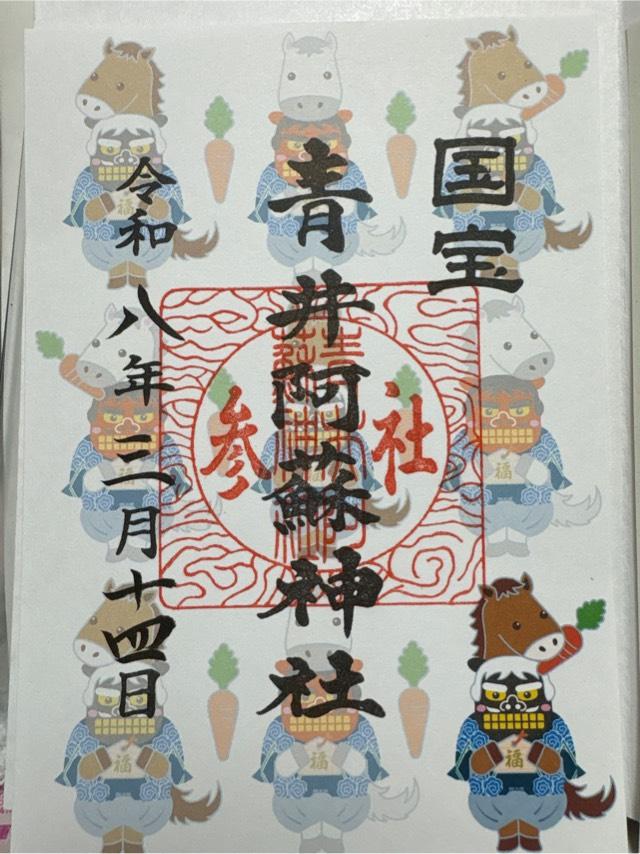 国宝
青井阿蘇神社
社参
令和八年三月十四日
福
福
福
福